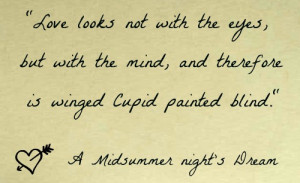 "Love looks not with the eyes,
but with the mind, and therefore
is winged Cupid painted blind."
A Midsummer night's Dream